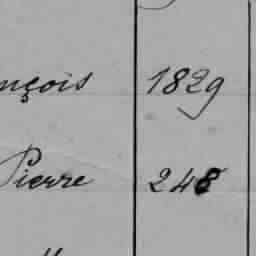 nçois 1829
Pierre 248